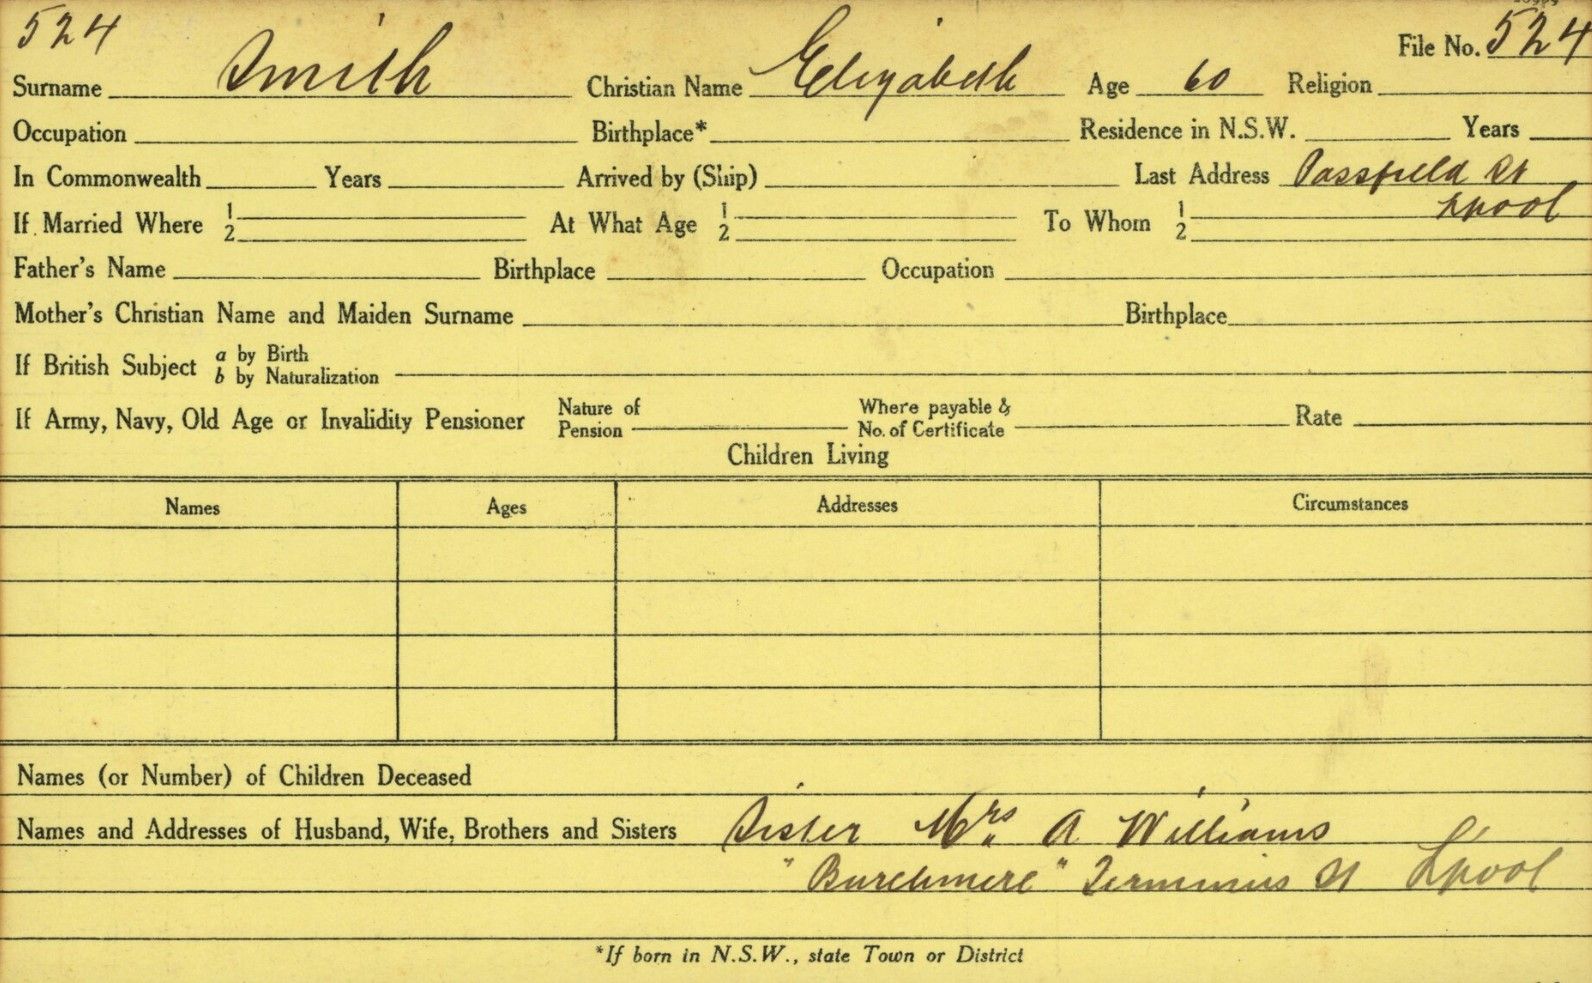 524
File No. 524
Surname Smith Christian Name Elizabeth Age 60 Religion
Occupation Birthplace* Residence in N.S.W. Years
In Commonwealth Years Arrived by (Ship) Last Address Passfield St
L'pool
If Married Where 1 2 At What Age 1 2 To Whom 1 2
Father's Name Birthplace Occupation
Mother's Christian Name and Maiden Surname Birthplace
If British Subject a by Birth
b by Naturalization
If Army, Navy, Old Age or Invalidity Pensioner Nature of Pension Where payable & No. of Certificate Rate
Children Living
Names Ages Addresses Circumstances
Names (or Number) of Children Deceased
Names and Addresses of Husband, Wife, Brothers and Sisters Sister Mrs A Williams
"Burchmere" Terminus St L'pool
*If born in N.S.W., state Town or District